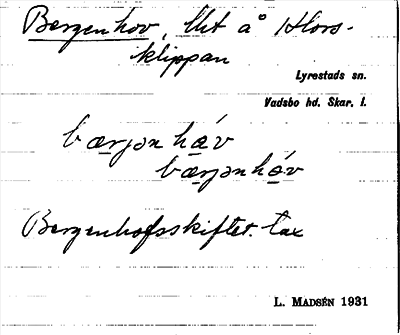 Bergenhov, lht å Hors-
klippan
Lyrestads sn.
Vadsbo hd. Skar. l.
bærjən håv
bærjənhåv
Bergenhofsskiftet. tax
L. MADSÉN 1931